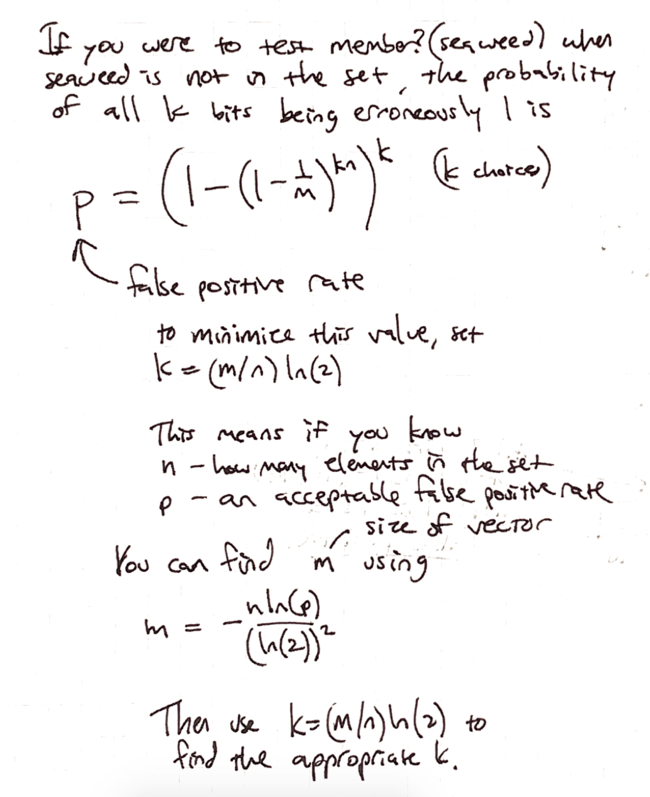 If you were to test member?(seaweed) when
seaweed is not in the set, the probability
of all k bits being erroneously 1 is
p = (1-(1-1/m)^kn)^k (k choices)
false positive rate
to minimize this value, set
k = (m/n) ln(2)
This means if you know
n - how many elements in the set
p - an acceptable false positive rate
size of vector
You can find m using
m = - n ln(p) / (ln(2))^2
Then use k=(m/n)ln(2) to
find the appropriate k.